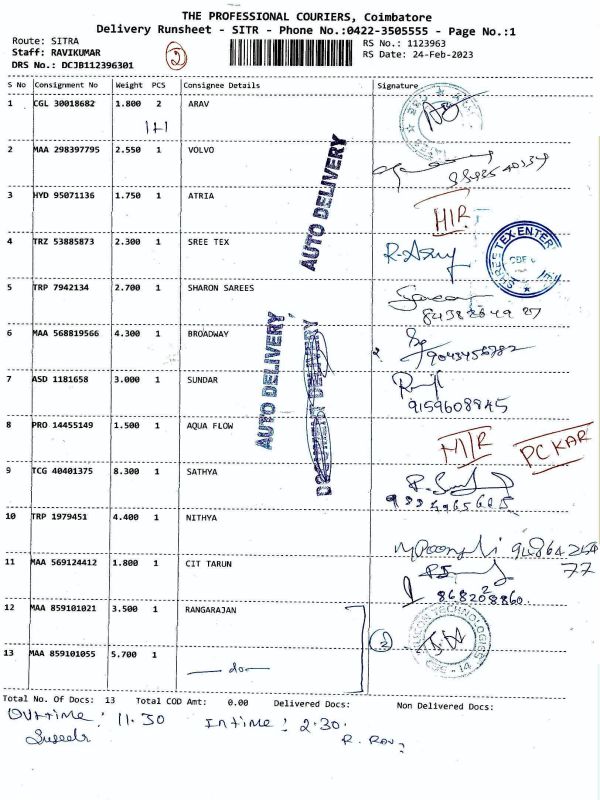 THE PROFESSIONAL COURIERS, Coimbatore
Delivery Runsheet - SITR - Phone No.:0422-3505555 - Page No.:1
Route: SITRA
RS No.: 1123963
Staff: RAVIKUMAR
RS Date: 24-Feb-2023
DRS No.: DCJB112396301
2
S No Consignment No Weight PCS Consignee Details Signature
1 CGL 30018682 1.800 2 ARAV
1+1
2 MAA 298397795 2.550 1 VOLVO
AUTO DELIVERY
3 HYD 95071136 1.750 1 ATRIA
HIR
4 TRZ 53885873 2.300 1 SREE TEX
SHREE TEX ENTER
5 TRP 7942134 2.700 1 SHARON SAREES
6 MAA 568819566 4.300 1 BROADWAY
AUTO DELIVERY
7 ASD 1181658 3.000 1 SUNDAR
9159608845
8 PRO 14455149 1.500 1 AQUA FLOW
PCKAR
9 TCG 40401375 8.300 1 SATHYA
10 TRP 1979451 4.400 1 NITHYA
77
11 MAA 569124412 1.800 1 CIT TARUN
8682028860
12 MAA 859101021 3.500 1 RANGARAJAN
2
13 MAA 859101055 5.700 1
do
Total No. Of Docs: 13 Total COD Amt: 0.00 Delivered Docs: Non Delivered Docs:
Outtime: 11.30 Intime: 2.30.